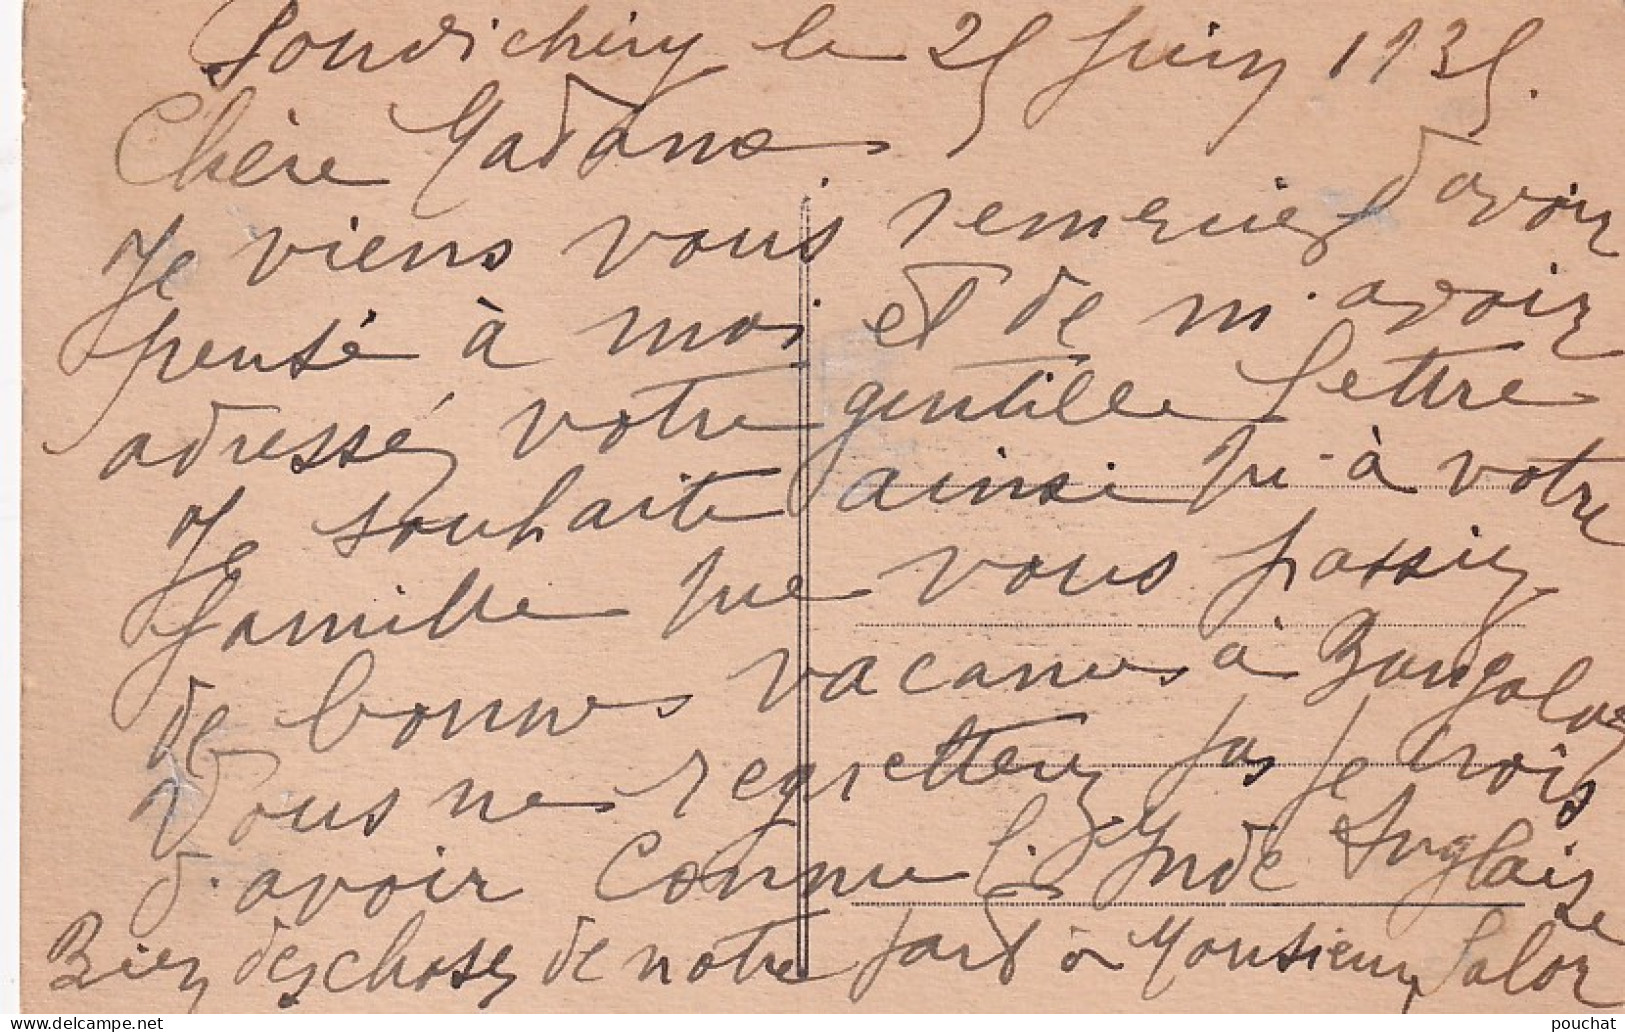 Pondichéry le 25 Juin 1935.
Chère Madame
Je viens vous remercier d'avoir
pensé à moi et de m'avoir
adressé votre gentille lettre
Je souhaite ainsi qu'à votre
famille que vous passiez
de bonnes vacances à Bangalore
Vous ne regretterez pas je crois
d'avoir connu l'Inde Anglaise
Bien des choses de notre part à Monsieur
delcampe.net
pouchat